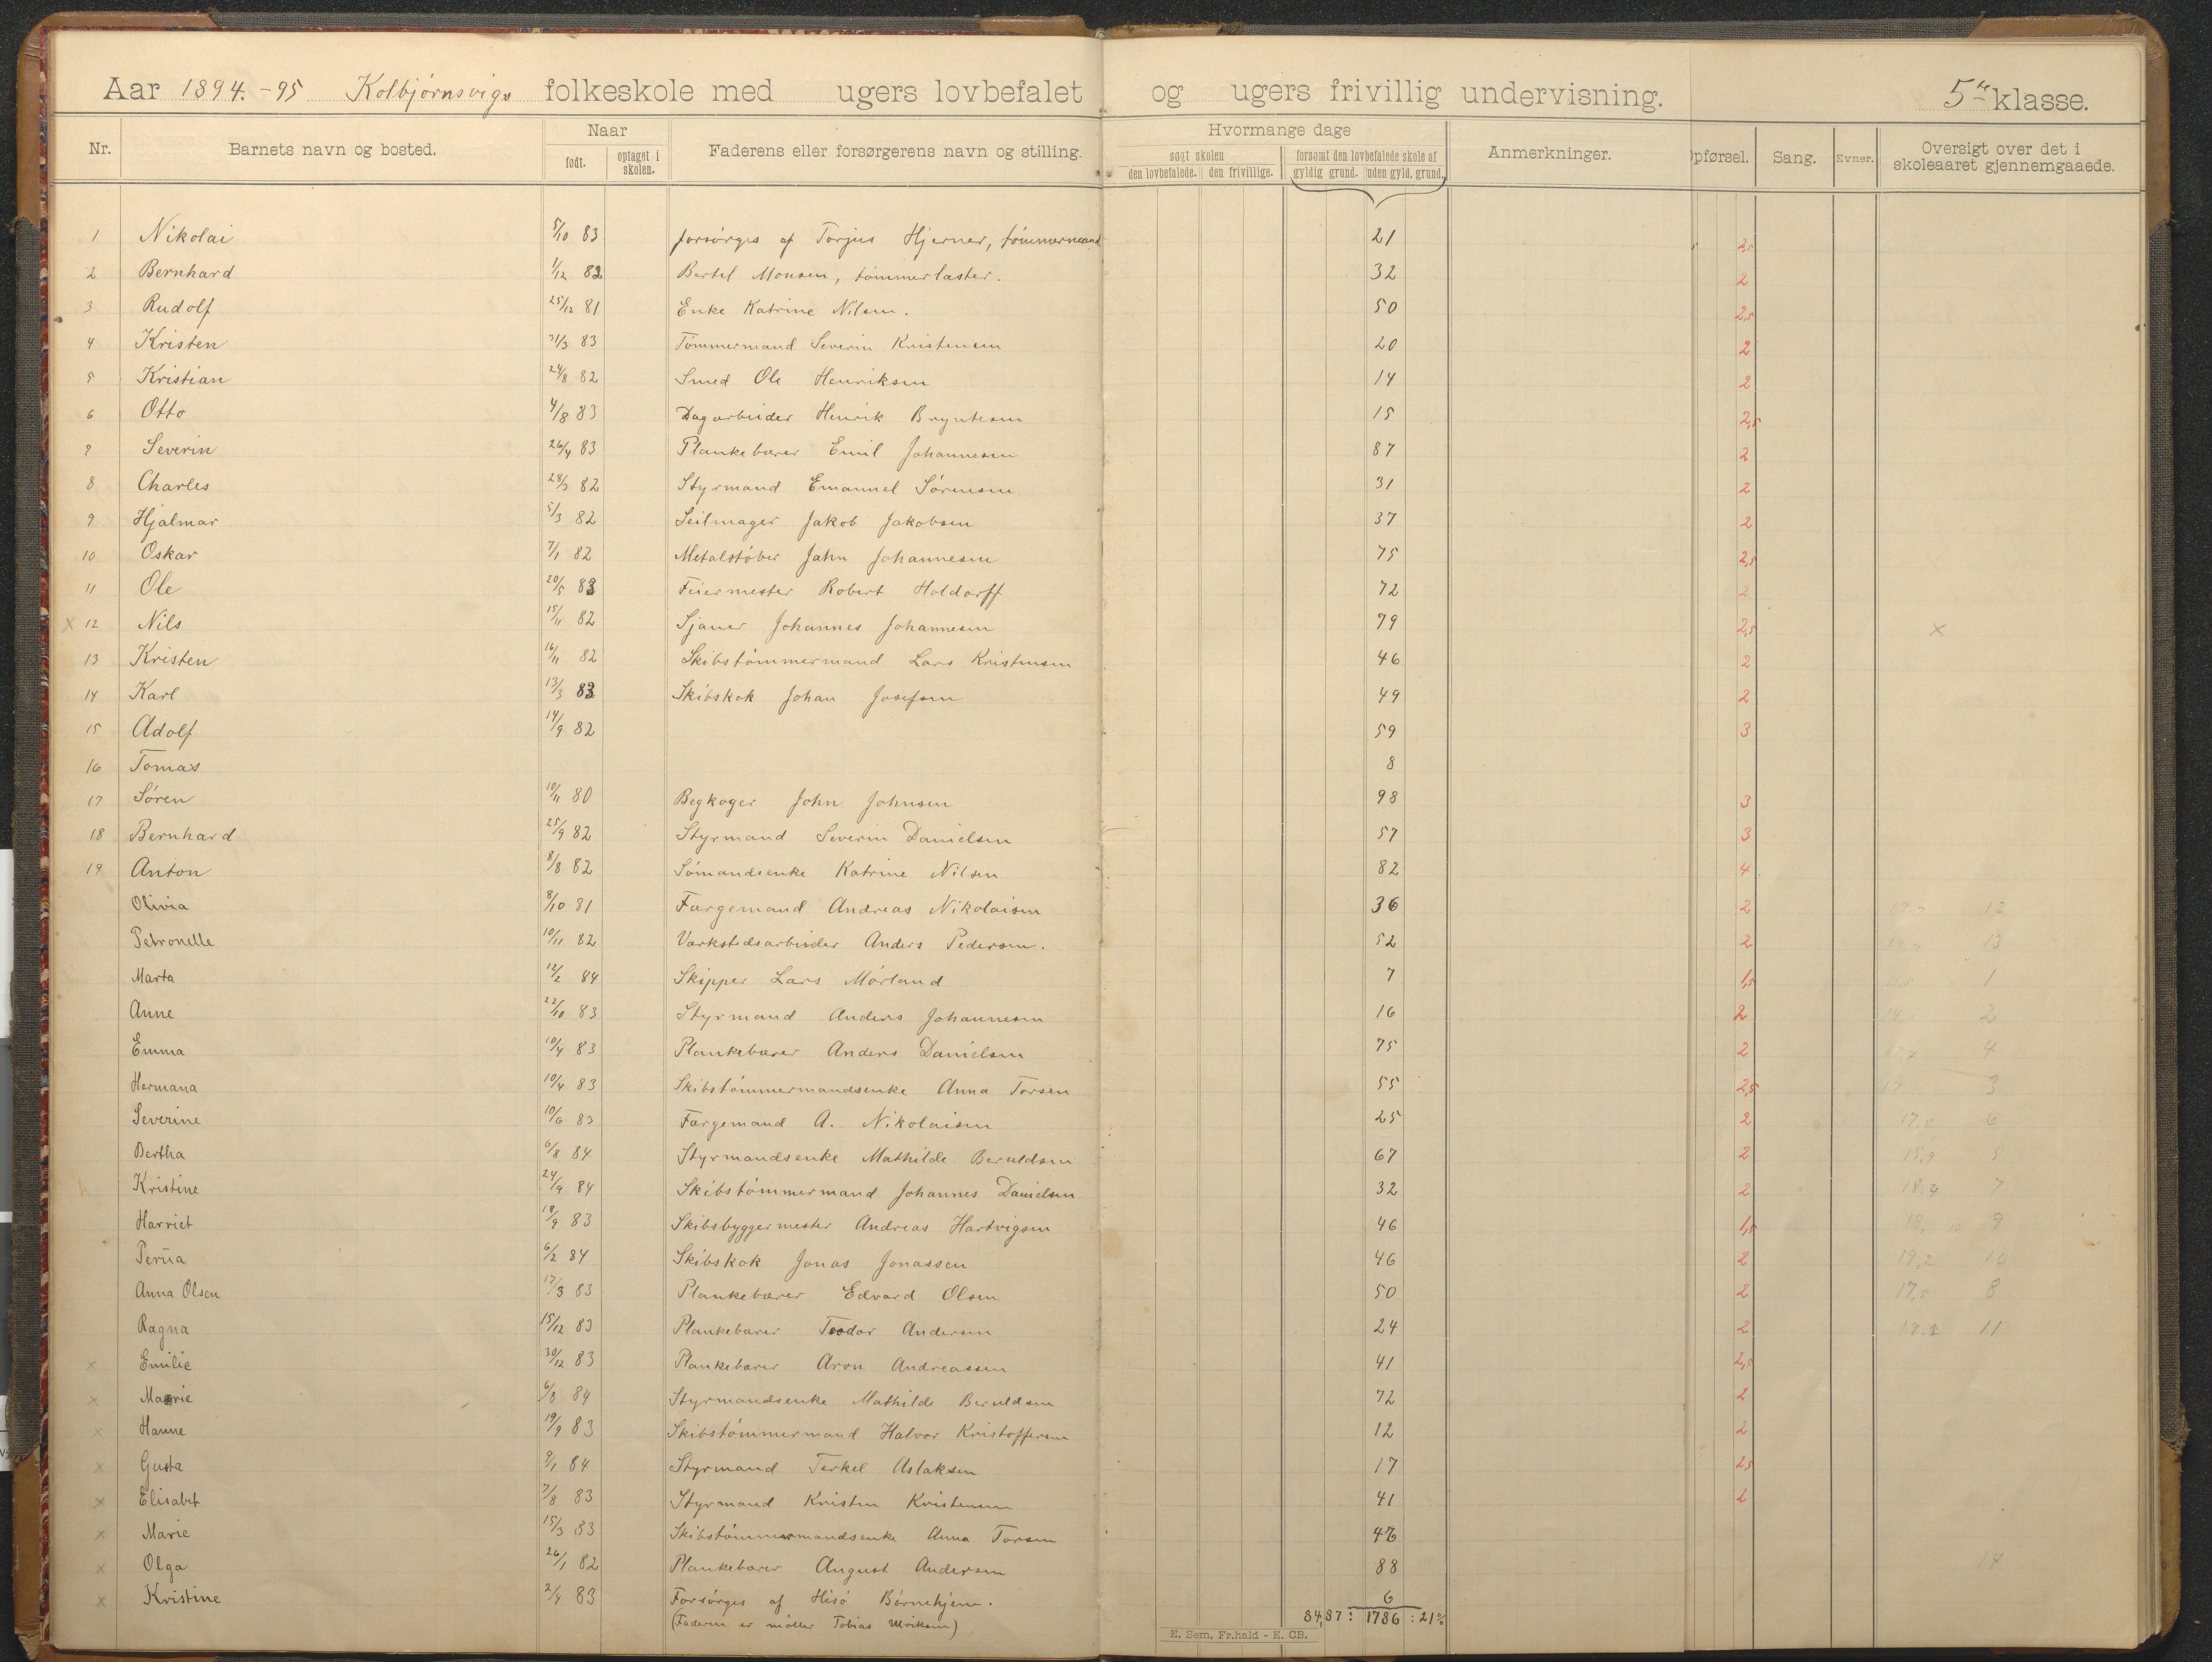 Aar 1894.-95 Kolbjørnsvigs folkeskole med ugers lovbefalet og ugers frivillig undervisning. 5te klasse.
Nr. Barnets navn og bosted. Naar født. optaget i skolen. Faderens eller forsørgerens navn og stilling. Hvormange dage søgt skolen den lovbefalede. den frivillige. forsømt den lovbefalede skole af gyldig grund. uden gyld. grund. Anmerkninger. Opførsel. Sang. Evner. Oversigt over det i skoleaaret gjennemgaaede.
1 Nikolai 5/10 83 forsørges af Torjus Hjerner, tømmermand 21 2,5
2 Bernhard 1/12 82 Bertel Monsen, tømmerlaster. 32 2
3 Rudolf 25/12 81 Enke Katrine Nilsen. 50 2,5
4 Kristen 31/3 83 Tømmermand Severin Kristensen 20 2
5 Kristian 24/8 82 Smed Ole Henriksen 14 2
6 Otto 4/8 83 Dagarbeider Henrik Bryntesen 15 2,5
7 Severin 26/4 83 Plankebærer Emil Johannesen 87 2
8 Charles 28/3 82 Styrmand Emanuel Sørensen 31 2
9 Hjalmar 5/3 82 Seilmager Jakob Jakobsen 37 2
10 Oskar 7/1 82 Metalstøber Jahn Johannesen 75 2,5
11 Ole 20/5 83 Feiermester Robert Holdorff 72 2
x 12 Nils 15/11 82 Sjauer Johannes Johannesen 79 2,5 x
13 Kristen 16/11 82 Skibstømmermand Lars Kristensen 46 2
14 Karl 13/3 83 Skibskok Johan Josefsen 49 2
15 Adolf 14/9 82 59 3
16 Tomas 8
17 Søren 10/11 80 Begkoger John Johnsen 98 3
18 Bernhard 25/9 82 Styrmand Severin Danielsen 57 3
19 Anton 8/8 82 Sømandsenke Katrine Nilsen 82 4
Olivia 8/10 81 Færgemand Andreas Nikolaisen 36 2 12
Petronelle 10/11 82 Værkstedsarbeider Anders Pedersen. 52 2 13
Marta 12/2 84 Skipper Lars Mørland 7 1,5 1
Anne 22/10 83 Styrmand Anders Johannesen 16 2 2
Emma 10/4 83 Plankebærer Anders Danielsen 75 2 4
Hermana 10/4 83 Skibstømmermandsenke Anna Torsen 55 2,5 3
Severine 10/6 83 Færgemand A. Nikolaisen 25 2 17,5 6
Bertha 6/8 84 Styrmandsenke Mathilde Beruldsen 67 2 15,9 5
Kristine 24/9 84 Skibstømmermand Johannes Danielsen 32 2 18,4 7
Harriet 18/9 83 Skibsbyggermester Andreas Hartvigsen 46 1,5 18, 9
Perüa 6/2 84 Skibskok Jonas Jonassen 46 2 19,2 10
Anna Olsen 17/3 83 Plankebærer Edvard Olsen 50 2 17,5 8
Ragna 15/12 83 Plankebærer Teodor Andersen 24 2 19.2 11
x Emilie 30/12 83 Plankebærer Aron Andreassen 41 2,5
x Marie 6/8 84 Styrmandsenke Mathilde Beruldsen 72 2
x Hanne 19/9 83 Skibstømmermand Halvor Kristoffersen 12 2
x Gusta 9/1 84 Styrmand Terkel Aslaksen 17 2,5
x Elisabet 7/8 83 Styrmand Kristen Kristensen 41 2
x Marie 15/3 83 Skibstømmermandsenke Anna Torsen 46
x Olga 26/1 82 Plankebærer August Andersen 88 14
x Kristine 2/4 83 Forsørges af Hisø Børnehjem. 6
(Faderen er møller Tobias Ulriksen) 84,87 : 1786 : 21%
E. Sem, Fr.hald - E. CB.